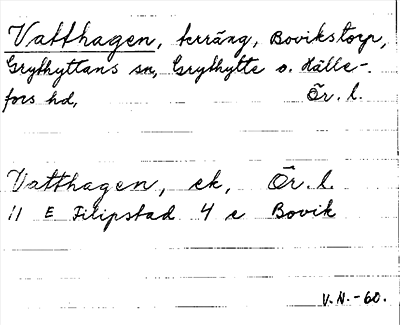 Vatthagen, terräng, Bovikstorp,
Grythyttans sn, Grythytte o. Hälle-
fors hd, Ör. l.
Vatthagen, ek, Ör. l.
11 E Filipstad 4 e Bovik
V.N.-60.